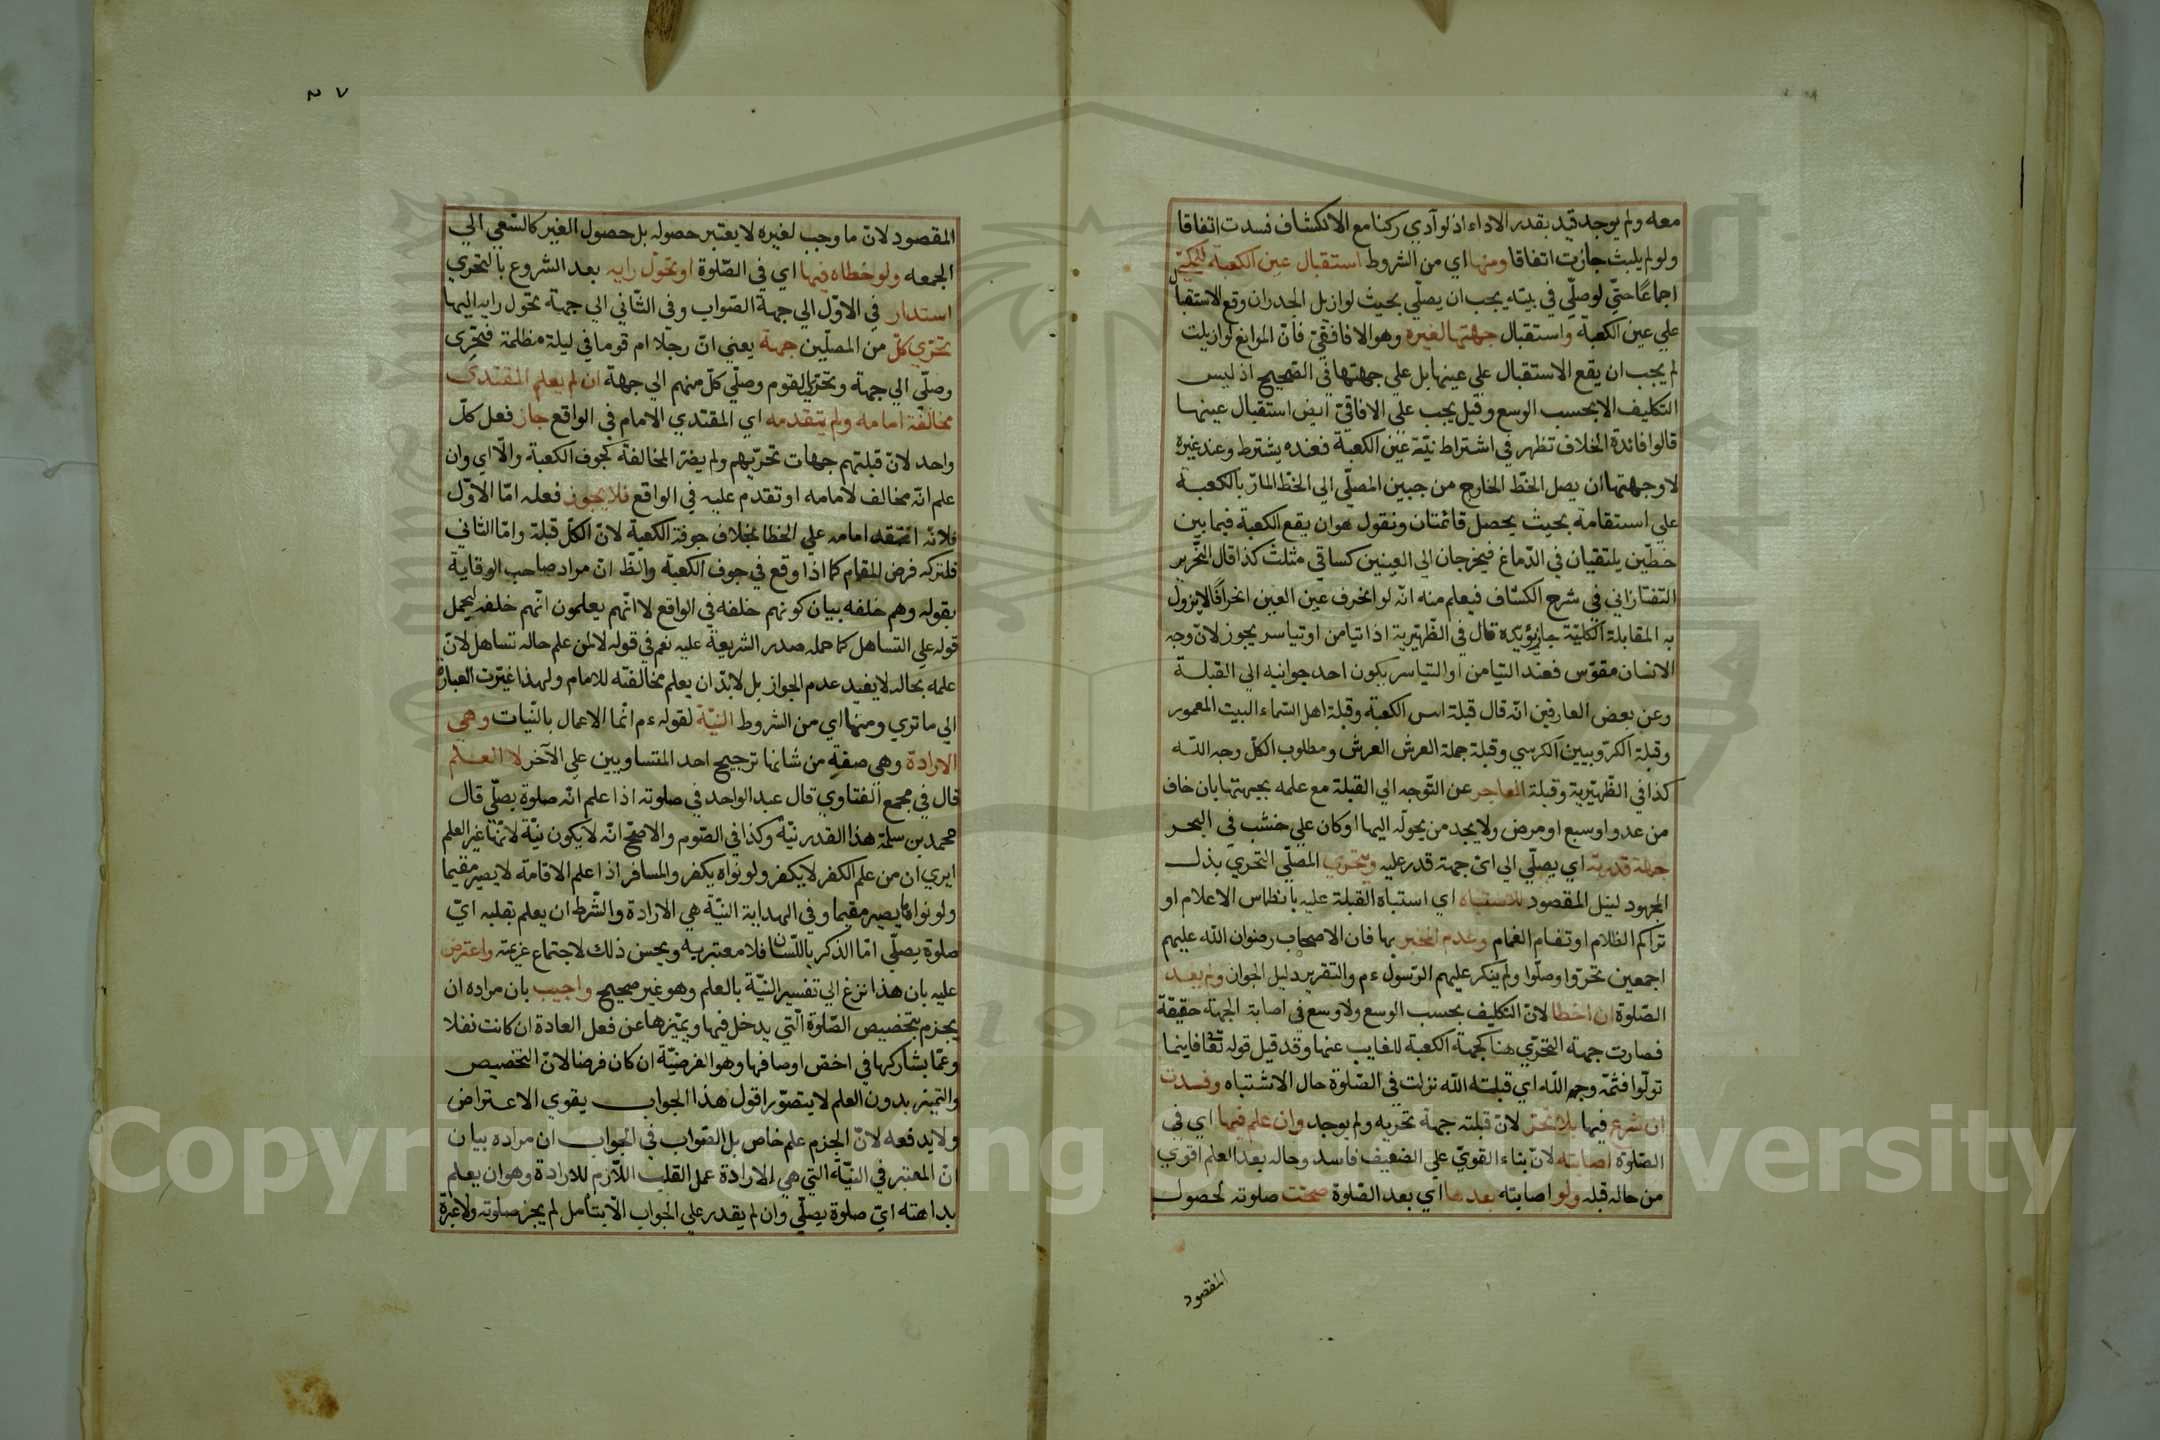 معه ولم يوجد قيد بقدر الاداء اذ لو آدي ركنا مع الانكشاف فسدت اتفاقا
ولو لم يلبث جازت اتفاقا ومنها اي من الشروط استقبال عين الكعبة للمكي
اجماعًا حتّي لو صلّي في بيته يجب ان يصلّي بحيث لو ازيل الجدران وقع الاستقبال
علي عين الكعبة واستقبال جهتها لغيره وهو الافاقيّ فانّ الموانع لو ازيلت
لم يجب ان يقع الاستقبال علي عينها بل علي جهتها في الصّحيح اذ ليس
التكليف الا بحسب الوسع وقيل يجب علي الافاقيّ ايض استقبال عينها
قالوا فائدة الخلاف تظهر في اشتراط نيّة عين الكعبة فعنده يشترط وعند غيره
لا وجهتها ان يصل الخطّ الخارج من جبين المصلّي الي الخطّ المارّ بالكعبة
علي استقامة بحيث يحصل قائمتان ونقول هو ان يقع الكعبة فيما بين
خطّين يلتقيان في الدّماغ فيخرجان الي العينين كساقي مثلث كذا قال النّحرير
التفتازاني في شرح الكشّاف فيعلم منه انّه لو انحرف عين العين انحرافًا لا يزول
به المقابلة الكليّة جاز يؤيّده قال في الظّهيرية اذا تيامن او تياسر يجوز لانّ وجه
الانسان مقوّس فعند التيامن او التياسر يكون احد جوانبه الي القبلة
وعن بعض العارفين انّه قال قبلة انس الكعبة وقبلة اهل السّماء البيت المعمور
وقبلة الكرّوبيين الكرسي وقبلة حملة العرش العرش ومطلوب الكلّ وجه اللّه
كذا في الظّهيريّة وقبلة العاجز عن التّوجه الي القبلة مع علمه بجهتها بان خاف
من عدو او سبع او مرض ولا يجد من يحوّله اليها او كان علي خشب في البحر
جهة قدرته اي يصلّي الي ايّ جهة قدر عليه ويتحرّي المصلّي التحري بذل
المجهود لنيل المقصود للاشتباه اي اشتباه القبلة عليه بانطماس الاعلام او
تراكم الظلام او تضام الغمام وعدم المخبر بها فان الاصحاب رضوان اللّه عليهم
اجمعين تحرّوا وصلّوا ولم ينكر عليهم الرّسول ءم والتقرير دليل الجواز ولم يعد
الصّلوة ان اخطا لانّ التكليف بحسب الوسع ولا وسع في اصابة الجهة حقيقة
فصارت جهة التحرّي هنا كجهة الكعبة للغايب عنها وقد قيل قوله تعا فاينما
تولّوا فثمّ وجه اللّه اي قبلته اللّه نزلت في الصّلوة حال الاشتباه وفسدت
ان شرع فيها بلا تحرّ لانّ قبلته جهة تحرّيه ولم يوجد وان علم فيها اي في
الصّلوة اصابته لانّ بناء القويّ علي الضعيف فاسد وحاله بعد العلم اقوي
من حاله قبله ولو اصابته بعدها اي بعد الصّلوة صحّت صلوته لحصول
المقصود
٢٧
المقصود لانّ ما وجب لغيره لا يعتبر حصوله بل حصول الغير كالسّعي الي
الجمعه ولو خطاه فيها اي في الصّلوة او تحوّل رايه بعد الشروع بالتحري
استدار في الاوّل الي جهة الصّواب وفي الثّاني الي جهة تحوّل رايه اليها
تحرّي كلّ من المصلّين جهة يعني انّ رجلا ام قوما في ليلة مظلمة فتحرّي
وصلّي الي جهة وتحرّي القوم وصلّي كلّ منهم الي جهة ان لم يعلم المقتدي
مخالفة امامه ولم يتقدمه اي المقتدي الامام في الواقع جاز فعل كلّ
واحد لانّ قبلتهم جهات تحرّيهم ولم يضرّ المخالفة كجوف الكعبة والّا اي وان
علم انّه مخالف لامامه او تقدم عليه في الواقع فلا يجوز فعله امّا الاوّل
فلانّه اعتقد امامه علي الخطا بخلاف جوفة الكعبة لانّ الكلّ قبلة وامّا الثاني
فلتركه فرض المقام كما اذا وقع في جوف الكعبة والظّ انّ مراد صاحب الوقاية
بقوله وهم خلفه بيان كونهم خلفه في الواقع لا انّهم يعلمون انّهم خلفه ليحمل
قوله علي التساهل كما حمله صدر الشريعة عليه نعم في قوله لا لمن علم حاله تساهل لانّ
علمه بحاله لا يفيد عدم الجواز بل لا بدّ ان يعلم مخالفته للامام ولهذا غيّرت العبارة
الي ما تري ومنها اي من الشروط النيّة لقوله ءم انّما الاعمال بالنّيات وهي
الارادة وهي صفة من شانها ترجيح احد المتساويين علي الآخر لا العلم
قال في مجمع الفتاوي قال عبد الواحد في صلوته اذا علم انّه صلوة يصلّي قال
محمد بن سلمة هذا القدر نيّة وكذا في الصّوم والاصحّ انّه لا يكون نيّة لانّها غير العلم
ايري ان من علم الكفر لا يكفر ولو نواه يكفر والمسافر اذا علم الاقامة لا يصير مقيما
ولو نواها يصير مقيما وفي الهداية النيّة هي الارادة والشّرط ان يعلم بقلبه ايّ
صلوة يصلّي امّا الذكر باللّسان فلا معتبر به ويحسن ذلك لاجتماع عزيمته واعترض
عليه بان هذا نزع الي تفسير النيّة بالعلم وهو غير صحيح واجيب بان مراده ان
يجزم بتخصيص الصّلوة الّتي يدخل فيها ويميّزها عن فعل العادة ان كانت نفلا
وعمّا يشاركها في اخصّ اوصافها وهو الفرضيّة ان كان فرضا لانّ التخصيص
والتّميز بدون العلم لا يتصوّر اقول هذا الجواب يقوي الاعتراض
ولا يدفعه لانّ الجزم علم خاص بل الصّواب في الجواب ان مراده بيان
انّ المعتبر في النيّة التي هي الارادة عمل القلب اللّازم للارادة وهو ان يعلم
بداهة ايّ صلوة يصلّي وان لم يقدر علي الجواب الّا بتامل لم يجز صلوته ولا عبرة
Copyright © King Saud University